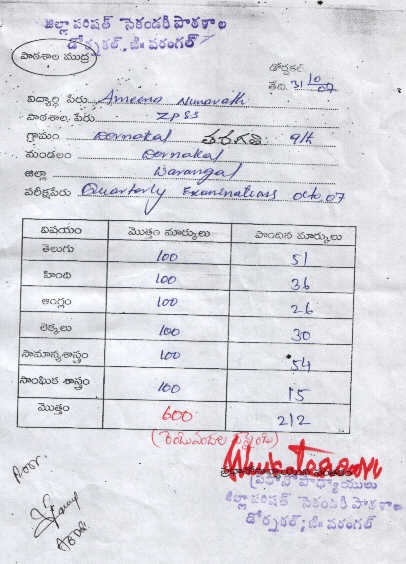 జిల్లా పరిషత్ సెకండరి పాఠశాల
డోర్నకల్, జి॥ వరంగల్
పాఠశాల ముద్ర
డోర్నకల్
తేది. 31/10/07
విద్యార్థి పేరు Ameena Nunavath
పాఠశాల పేరు ZPSS
గ్రామం Dornakal తరగతి 9th
మండలం Dornakal
జిల్లా Warangal
పరీక్షపేరు Quarterly Examinations Octo.07
విషయం మొత్తం మార్కులు పొందిన మార్కులు
తెలుగు 100 51
హింది 100 36
ఆంగ్లం 100 26
లెక్కలు 100 30
సామాన్యశాస్త్రం 100 54
సాంఘిక శాస్త్రం 100 15
మొత్తం 600 212
ప్రధానోపాధ్యాయులు
జిల్లా పరిషత్ సెకండరి పాఠశాల
డోర్నకల్; జి॥ వరంగల్